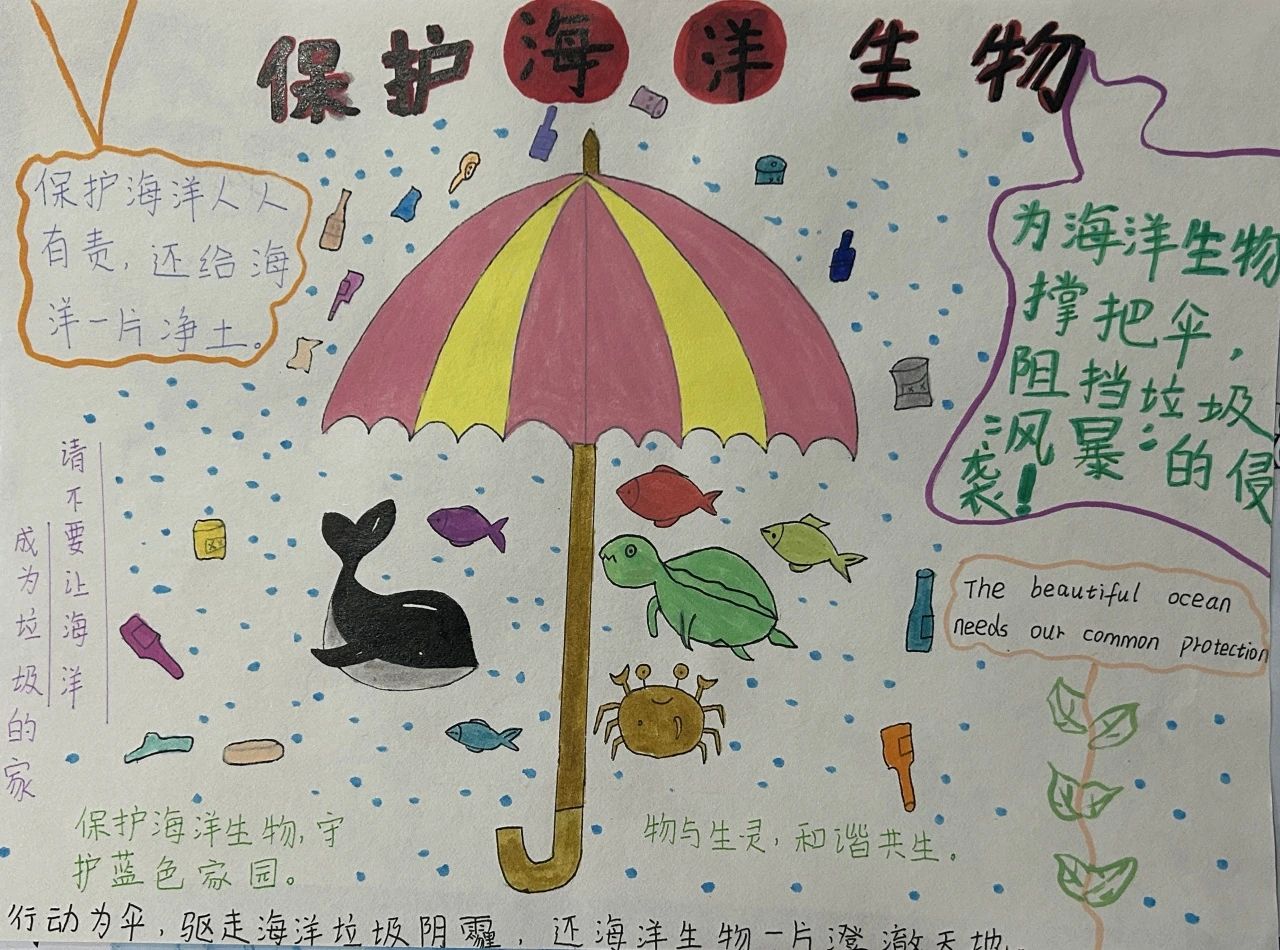 保护海洋生物
保护海洋人人
有责,还给海
洋一片净土。
为海洋生物
撑把伞,
阻挡垃圾
“风暴”的侵
袭!
请不要让海洋
成为垃圾的家
The beautiful ocean
needs our common protection
保护海洋生物,守
护蓝色家园。
物与生灵,和谐共生。
行动为伞,驱走海洋垃圾阴霾,还海洋生物一片澄澈天地。